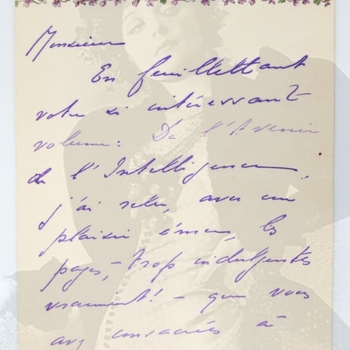 Monsieur
En feuillettant
votre si intéressant
volume: De l'Avenir
de l'Intelligence,
j'ai relu, avec un
plaisir ému, les
pages, – trop indulgentes
vraiment! – que vous
avez consacrées à